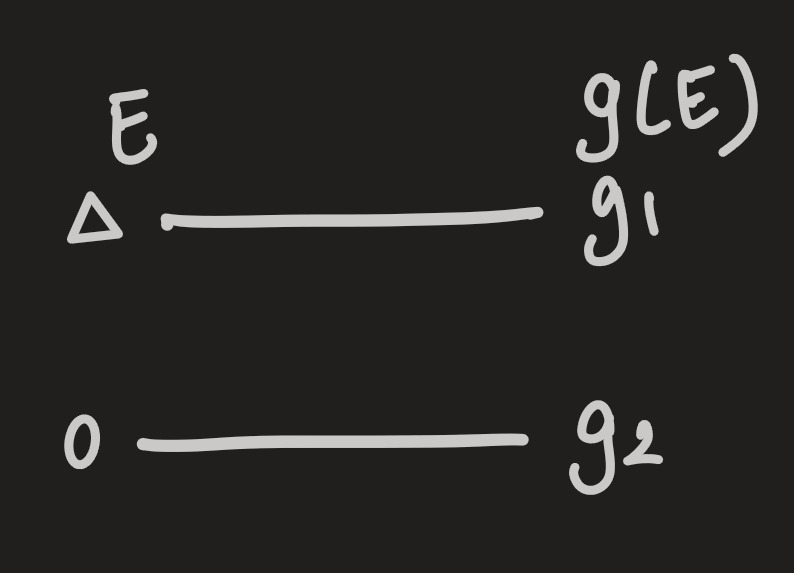 E g(E)
Δ g1
0 g2